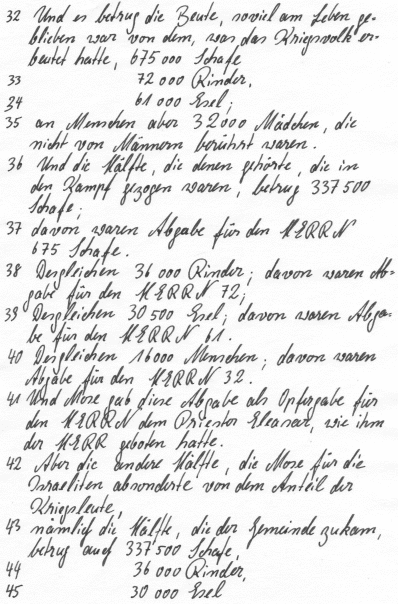 32 Und es betrug die Beute, soviel am Leben ge-
blieben war von dem, was das Kriegsvolk er-
beutet hatte, 675 000 Schafe
33 72 000 Rinder,
34 61 000 Esel;
35 an Menschen aber 32 000 Mädchen, die
nicht von Männern berührt waren.
36 Und die Hälfte, die denen gehörte, die in
den Kampf gezogen waren, betrug 337 500
Schafe;
37 davon waren Abgabe für den HERRN
675 Schafe.
38 Desgleichen 36 000 Rinder; davon waren Ab-
gabe für den HERRN 72;
39 Desgleichen 30 500 Esel; davon waren Abga-
be für den HERRN 61.
40 Desgleichen 16000 Menschen; davon waren
Abgabe für den HERRN 32.
41 Und Mose gab diese Abgabe als Opfergabe für
den HERRN dem Priester Eleasar, wie ihm
der HERR geboten hatte.
42 Aber die andere Hälfte, die Mose für die
Israeliten absonderte von dem Anteil der
Kriegsleute,
43 nämlich die Hälfte, die der Gemeinde zukam,
betrug auch 337 500 Schafe,
44 36 000 Rinder,
45 30 000 Esel